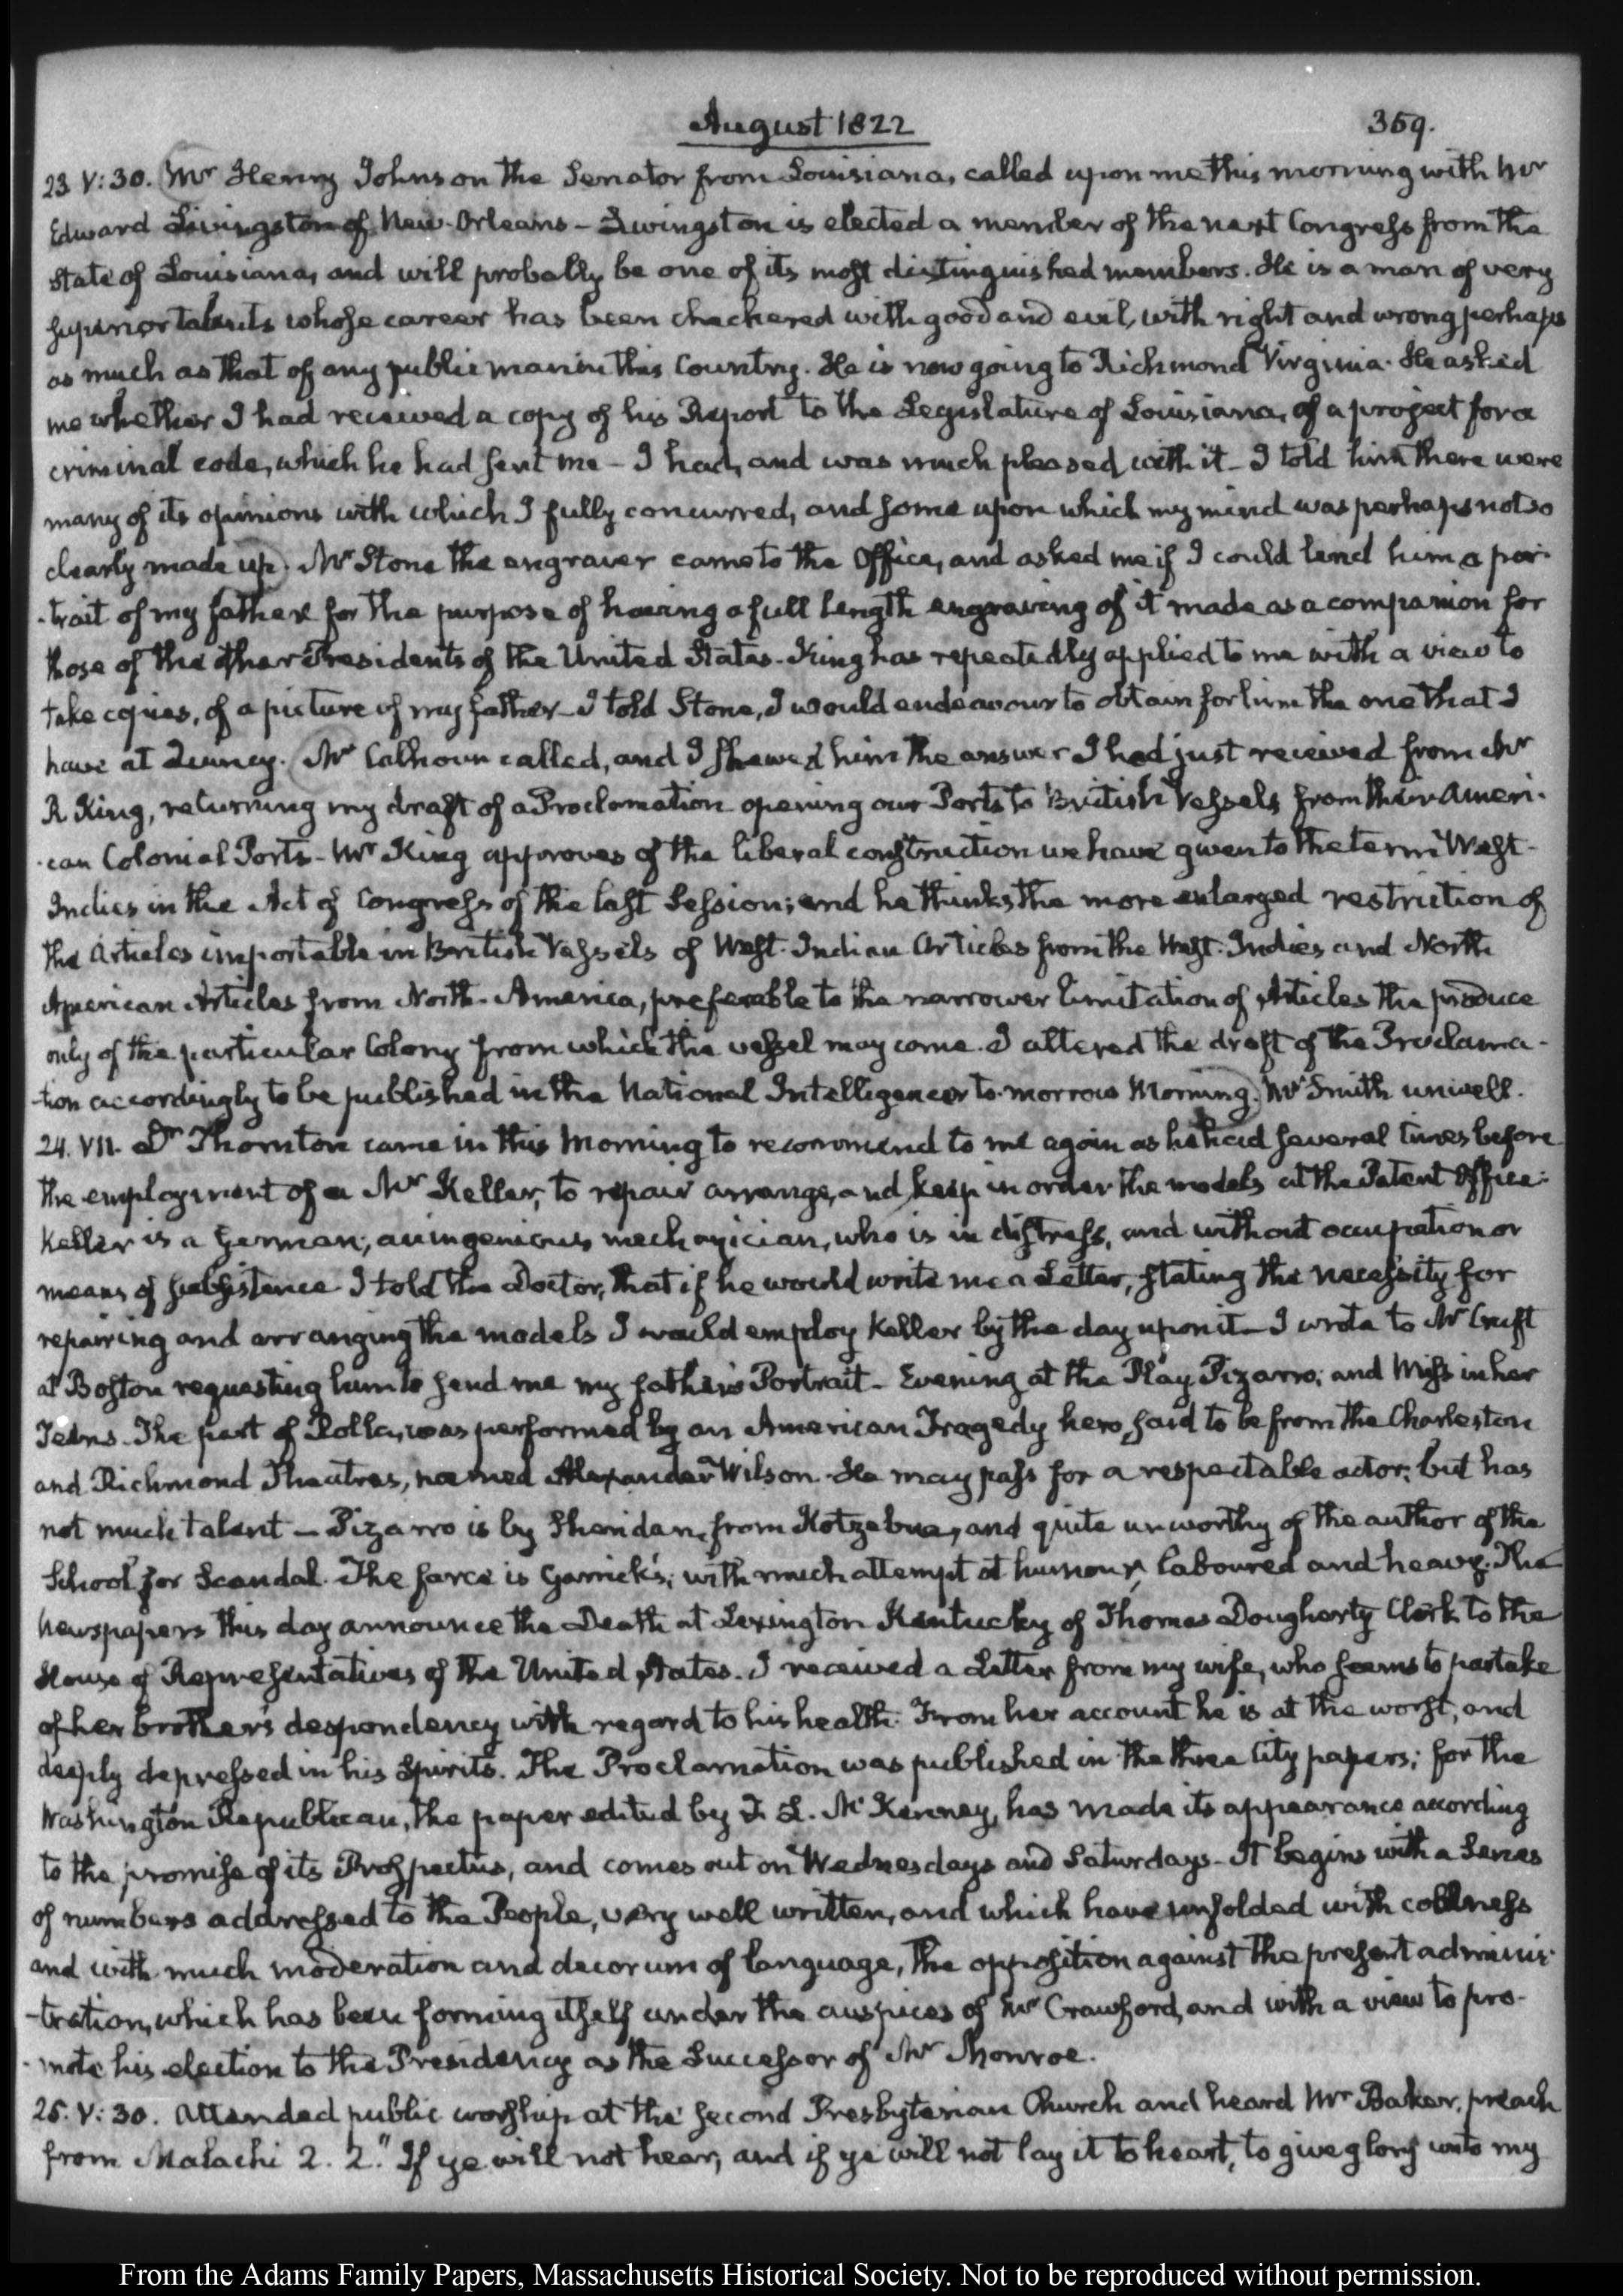 August 1822
359.
23 V:30. Mr Henry Johnson the Senator from Louisiana, called upon me this morning with Mr
Edward Livingston of New-Orleans - Livingston is elected a member of the next Congress from the
State of Louisiana, and will probably be one of its most distinguished members. He is a man of very
superior talents whose career has been checkered with good and evil, with right and wrong perhaps
as much as that of any public man in this Country. He is now going to Richmond Virginia. He asked
me whether I had received a copy of his Report to the Legislature of Louisiana, of a project for a
criminal code, which he had sent me - I had, and was much pleased with it - I told him there were
many of its opinions with which I fully concurred, and some upon which my mind was perhaps not so
clearly made up. Mr Stone the engraver came to the Office, and asked me if I could lend him a por-
-trait of my father for the purpose of having a full length engraving of it made as a companion for
those of the other Presidents of the United States. King has repeatedly applied to me with a view to
take copies, of a picture of my father - I told Stone, I would endeavour to obtain for him the one that I
have at Quincy. Mr Calhoun called, and I shewed him the answer I had just received from Mr
R. King, returning my draft of a Proclamation opening our Ports to British Vessels from their Ameri-
-can Colonial Ports - Mr King approves of the liberal construction we have given to the term West-
Indies in the Act of Congress of the last Session; and he thinks the more enlarged restriction of
the Articles importable in British Vessels of West-Indian Articles from the West-Indies and North
American Articles from North-America, preferable to the narrower limitation of Articles the produce
only of the particular Colony from which the vessel may come. I altered the draft of the Proclama-
-tion accordingly to be published in the National Intelligencer to-morrow Morning. Mr Smith unwell.
24. VII. Dr Thornton came in this Morning to recommend to me again as he had several times before
the employment of a Mr Keller, to repair arrange, and keep in order the models at the Patent Office:
Keller is a German; an ingenious mechanician, who is in distress, and without occupation or
means of subsistence I told the Doctor, that if he would write me a Letter, stating the necessity for
repairing and arranging the models I would employ Keller by the day upon it - I wrote to Mr Cruft
at Boston requesting him to send me my father's Portrait - Evening at the Play Pizarro; and Miss in her
Teens - The part of Rolla, was performed by an American Tragedy hero, said to be from the Charleston
and Richmond Theatres, named Alexander Wilson. He may pass for a respectable actor; but has
not much talent - Pizarro is by Sheridan, from Kotzebue, and quite unworthy of the author of the
School for Scandal. The farce is Garrick's; with much attempt at humour, laboured and heavy. The
Newspapers this day announce the Death at Lexington Kentucky of Thomas Dougherty Clerk to the
House of Representatives of the United States. I received a Letter from my wife, who seems to partake
of her brother's despondency with regard to his health. From her account he is at the worst, and
deeply depressed in his Spirits. The Proclamation was published in the three City papers; for the
Washington Republican, the paper edited by T. L. McKenney, has made its appearance according
to the promise of its Prospectus, and comes out on Wednesdays and Saturdays - It begins with a Series
of numbers addressed to the People, very well written, and which have unfolded with coolness
and with much moderation and decorum of language, the opposition against the present adminis-
-tration, which has been forming itself under the auspices of Mr Crawford, and with a view to pro-
-mote his election to the Presidency as the Successor of Mr Monroe.
25. V:30. Attended public worship at the second Presbyterian Church and heard Mr Baker, preach
from Malachi 2. 2. "If ye will not hear, and if ye will not lay it to heart, to give glory unto my
From the Adams Family Papers, Massachusetts Historical Society. Not to be reproduced without permission.